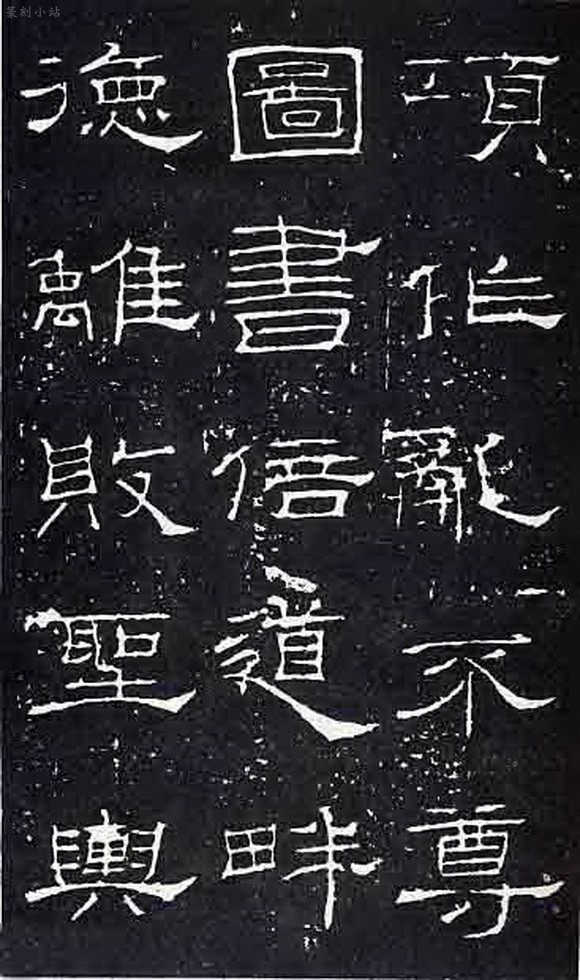 篆刻小站
項作亂不尊
圖書倍道畔
德離敗聖輿